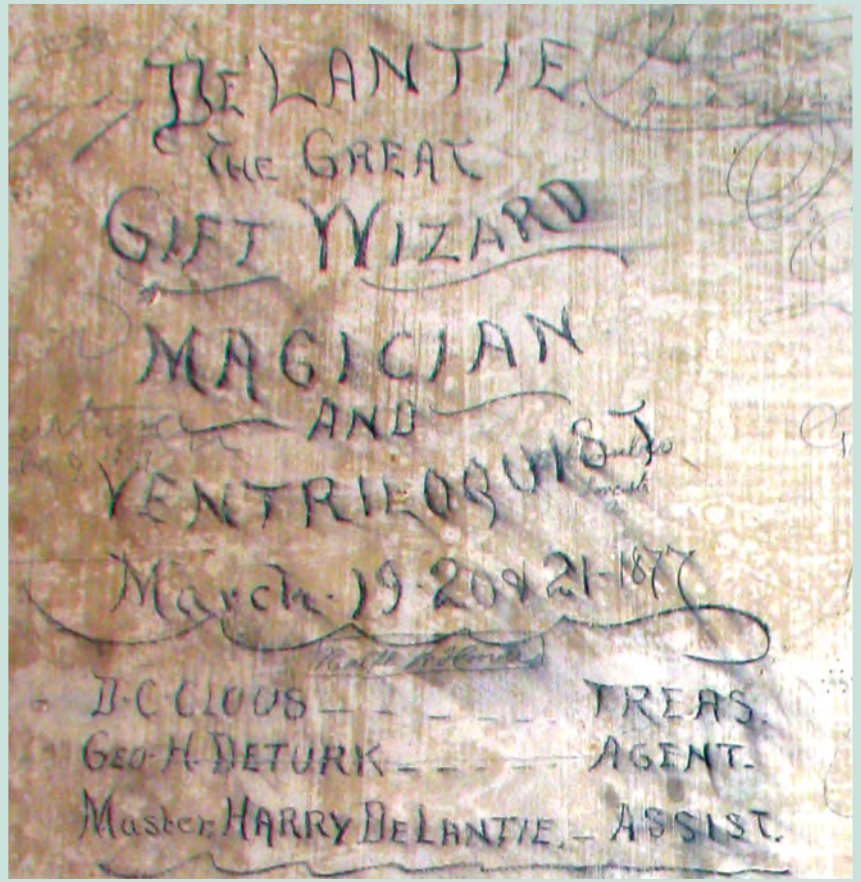 DELANTIE.
THE GREAT
GIFT WIZARD
MAGICIAN
AND
VENTRILOQUIST
March. 19-20 & 21-1877
D.C CLOUS - - - - - - TREAS.
GEO. H. DETURK - - - - - - AGENT.
Master. HARRY DELANTIE. - ASSIST.